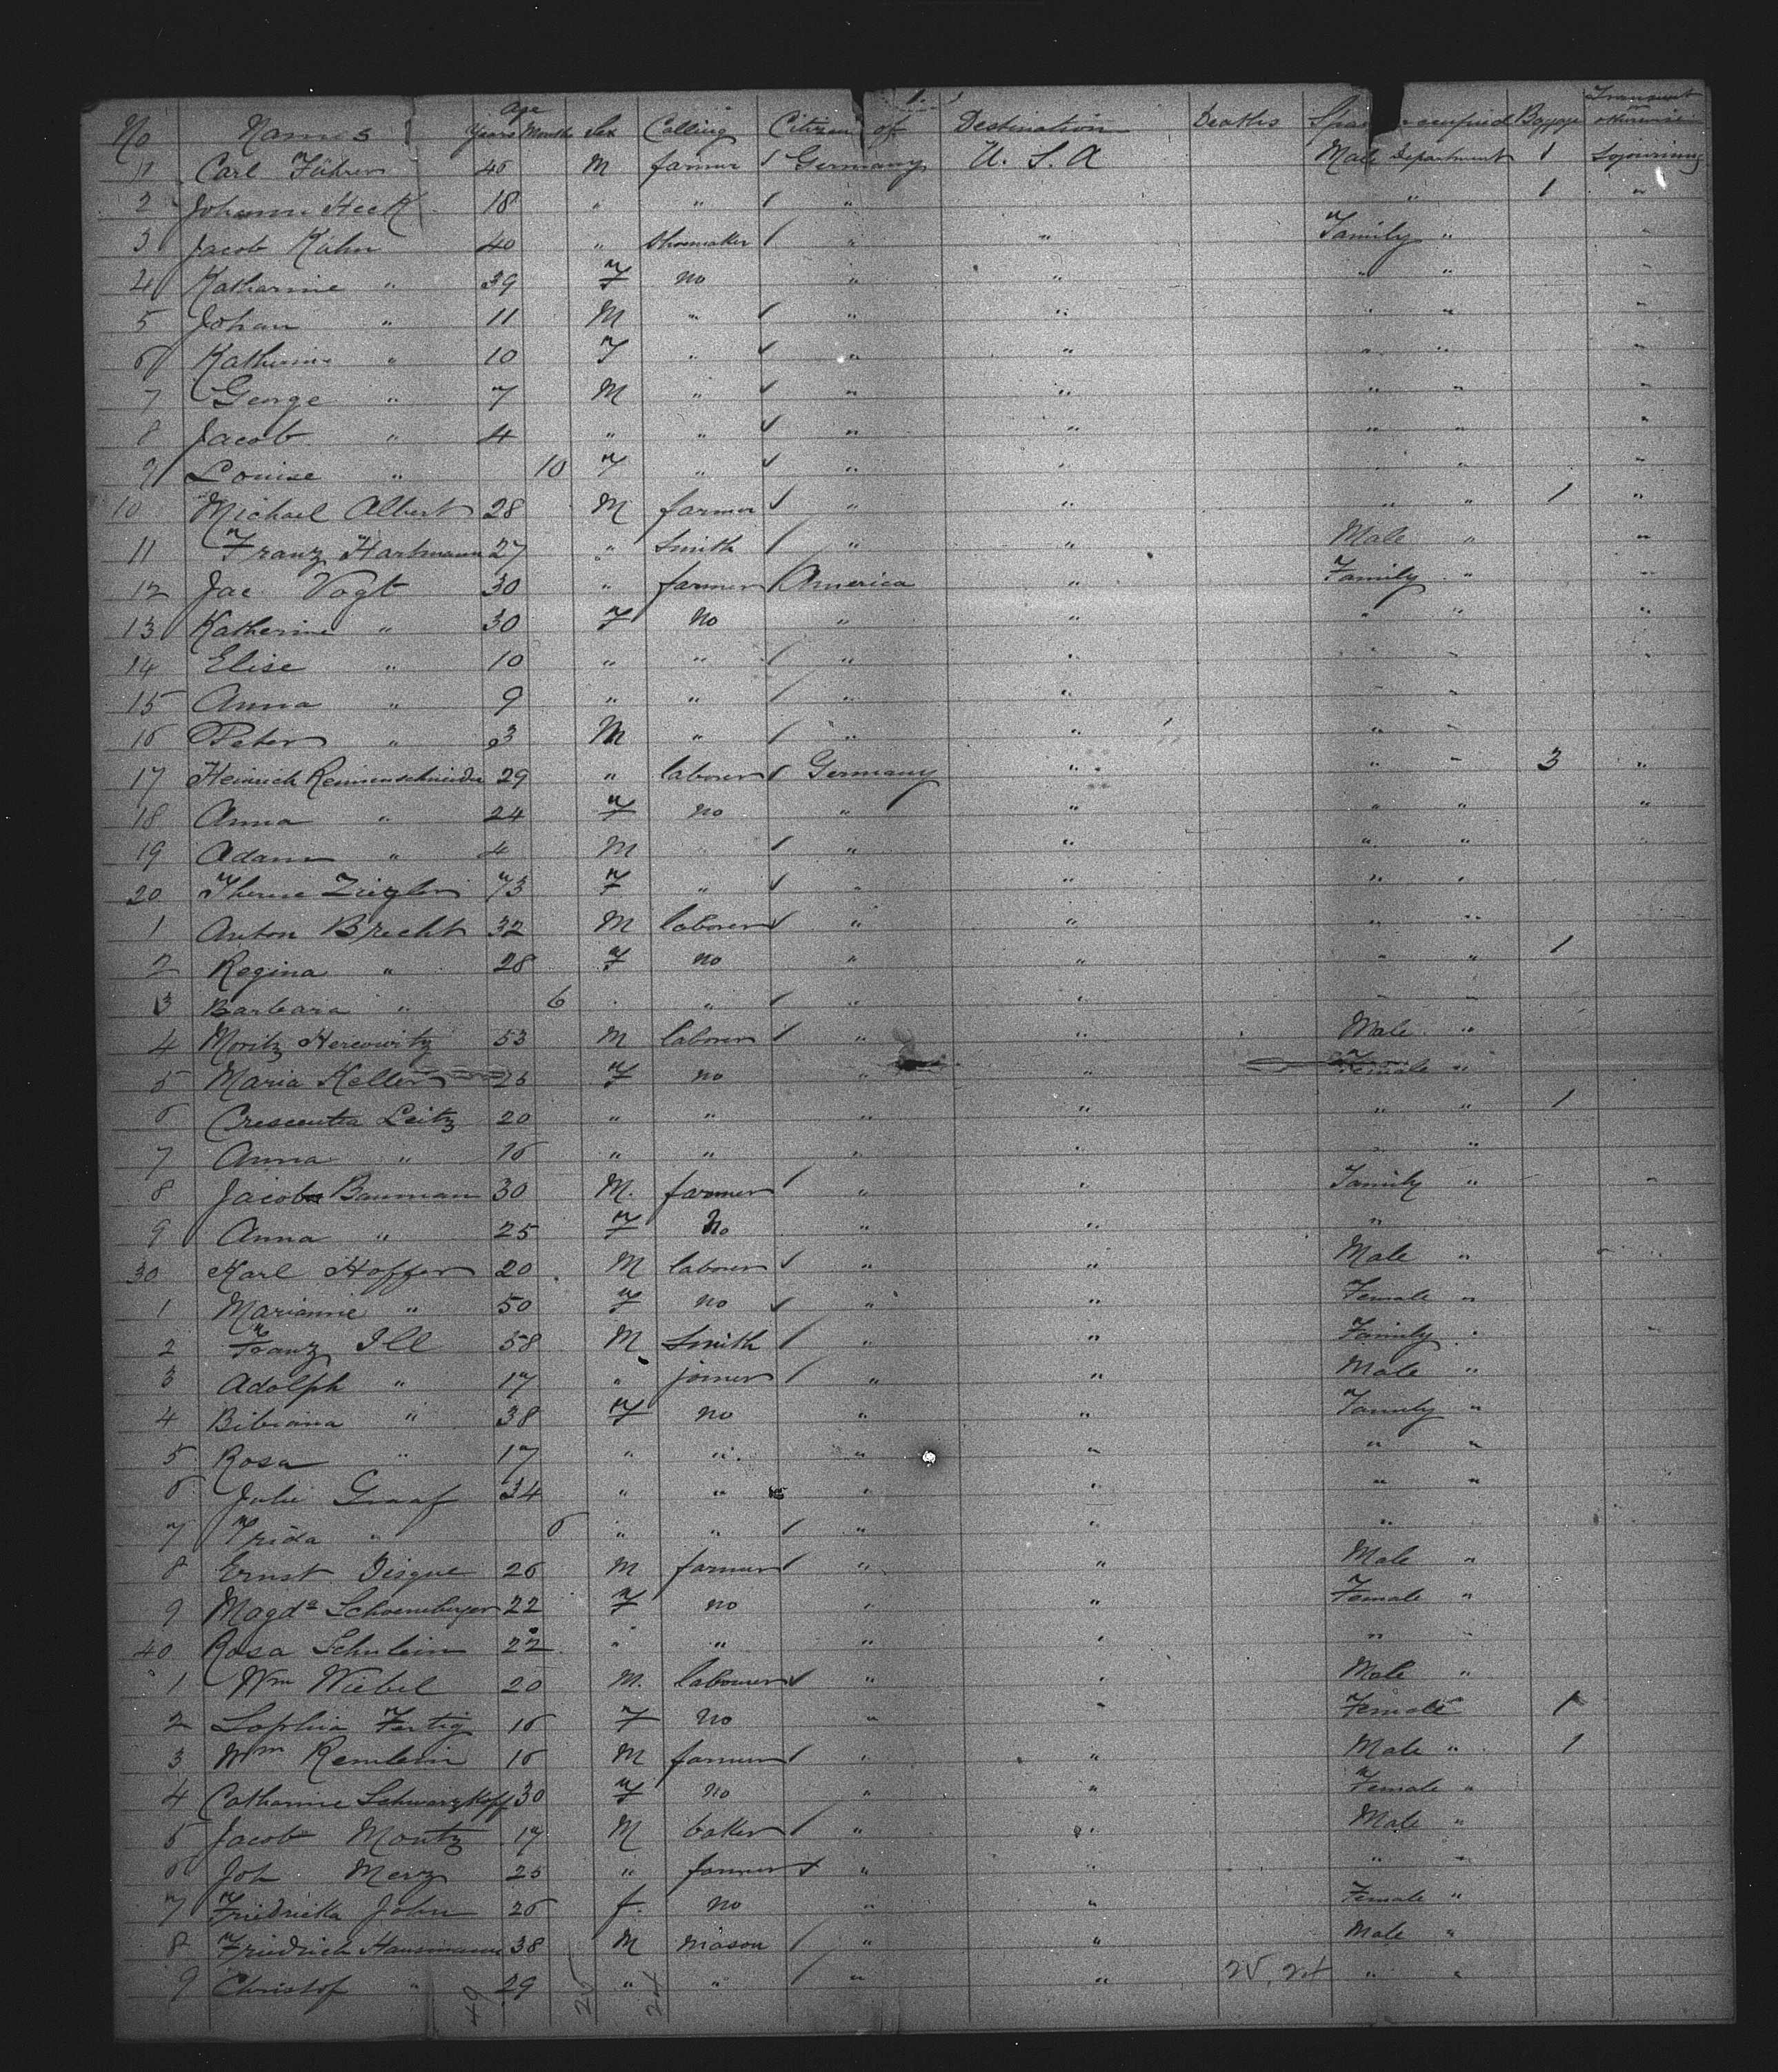 No Names Age Years Months Sex Calling Citizen of Destination Deaths Space occupied Baggage Transient or otherwise
1 Carl Führer 45 M farmer Germany U. S. A Male Department 1 Sojourning
2 Johann Heck 18 " " " " 1 "
3 Jacob Kühn 40 " Shoemaker " " Family " "
4 Katherine " 39 F no " " " " "
5 Johan " 11 M " " " " " "
6 Katherine " 10 F " " " " " "
7 George " 7 M " " " " " "
8 Jacob " 4 " " " " " " "
9 Louise " 10 F " " " " " "
10 Michael Albert 28 M farmer " " " " 1 "
11 Franz Hartmann 27 " Smith " " Male " "
12 Jac. Vogt 30 " farmer America " Family " "
13 Katherine " 30 F no " " " " "
14 Elise " 10 " " " " " " "
15 Anna " 9 " " " " " "
16 Peter " 3 M " " " " "
17 Heinrich Remenschneider 29 " laborer Germany " " " 3 "
18 Anna " 24 F no " " " " "
19 Adam " 4 M " " " " "
20 Ziegler 73 F " " " " "
1 Anton Brecht 32 M laborer " " " "
2 Regina " 28 F no " " " " 1
3 Barbara " 6 " " " " " "
4 Moritz Hercowitz 53 M laborer " " Male "
5 Maria Keller 26 F no " " Female "
6 Crescentia Leitz 20 " " " " " " 1
7 Anna " 16 " " " " " "
8 Jacob Bauman 30 M. farmer " " Family " "
9 Anna " 25 F No " " "
30 Karl Hoffer 20 M laborer " " Male " "
1 Marianne " 50 F no " " Female "
2 Franz Ill 58 M Smith " " Family " "
3 Adolph " 17 " joiner " " Male "
4 Bibiana " 38 F no " " Family "
5 Rosa " 17 " " " " " "
6 Julie Graaf 34 " " " " " "
7 Frida " 6 " " " " "
8 Ernst Disque 26 M farmer " " Male "
9 Magda Schoeneberger 22 F no " " Female "
40 Rosa Schulein 22 " " " " " "
1 Wm Wiebel 20 M. labourer " " Male "
2 Sophia Fertig 16 F no " " Female 1
3 Wm Remlein 16 M farmer " " Male " 1
4 Catharine Schwarzkopf 30 F no " " Female "
5 Jacob Montz 17 M baker " " Male "
6 Joh Merz 25 " farmer " " " "
7 Friedricka John 26 f. no " " Female "
8 Friedrich Hausmann 38 M mason " " Male "
9 Christof " 29 " " " " 25, 24 " "
49 25 24